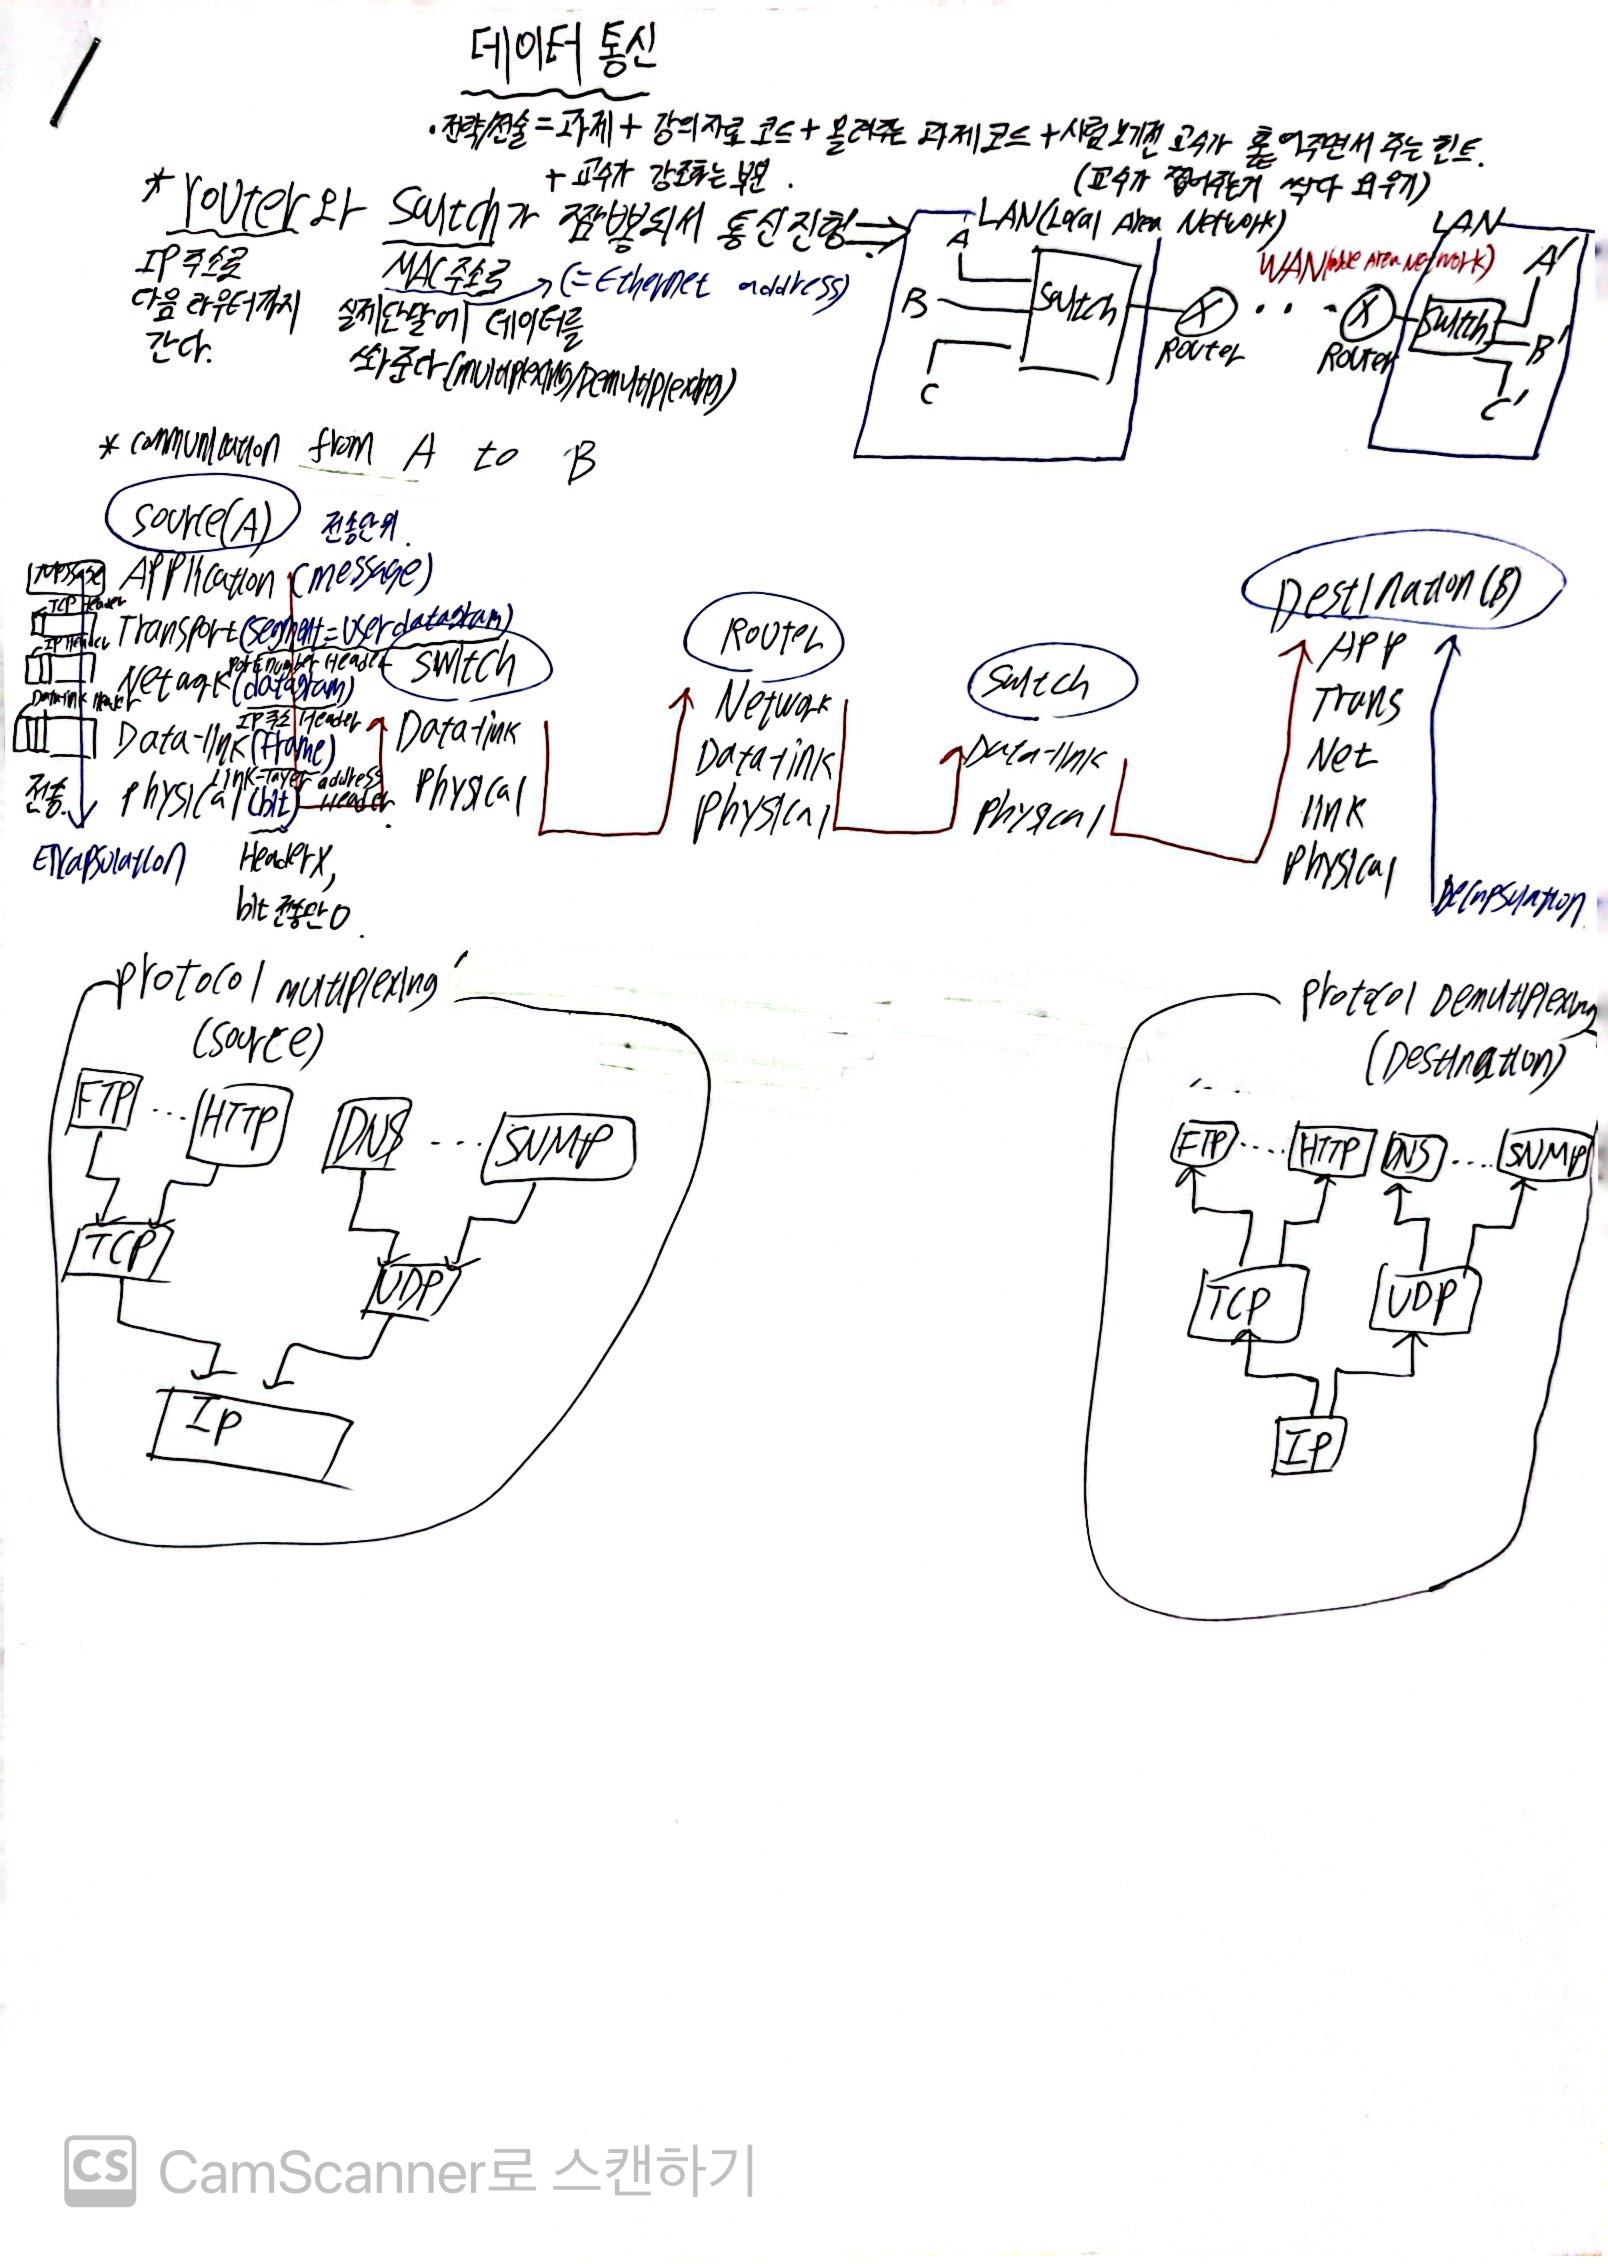 데이터 통신
· 전략/전술 = 과제 + 강의자료 코드 + 올려주는 과제코드 + 시험보기전 교수가 훑어주면서 주는 힌트.
+ 교수가 강조하는 부분.
(교수가 찝어주는거 싹다 외우기)
* Router와 Switch가 짬뽕되서 통신진행
IP주소로
다음 라우터까지
간다.
MAC주소로
(=Ethernet address)
실제단말에 데이터를
쏴준다(multiplexing/Demultiplexing)
LAN(Local Area Network)
A
B
C
Switch
Router
WAN(Wide Area Network)
Router
LAN
Switch
A'
B'
C'
* communication from A to B
Source(A)
전송단위.
message
Application (message)
TCP Header
Transport (segment=user datagram)
Port number Header
IP Header
Network (datagram)
IP주소 Header
Data-link Header
Data-link (frame)
Link-layer address Header
전송.
Physical (bit)
Header X,
bit 전송만 O.
Encapsulation
Switch
Data-link
Physical
Router
Network
Data-link
Physical
Switch
Data-link
Physical
Destination(B)
APP
Trans
Net
link
Physical
Decapsulation
protocol multiplexing
(source)
FTP ... HTTP DNS ... SNMP
TCP UDP
IP
protocol Demultiplexing
(Destination)
FTP .... HTTP DNS .... SNMP
TCP UDP
IP
CS CamScanner로 스캔하기